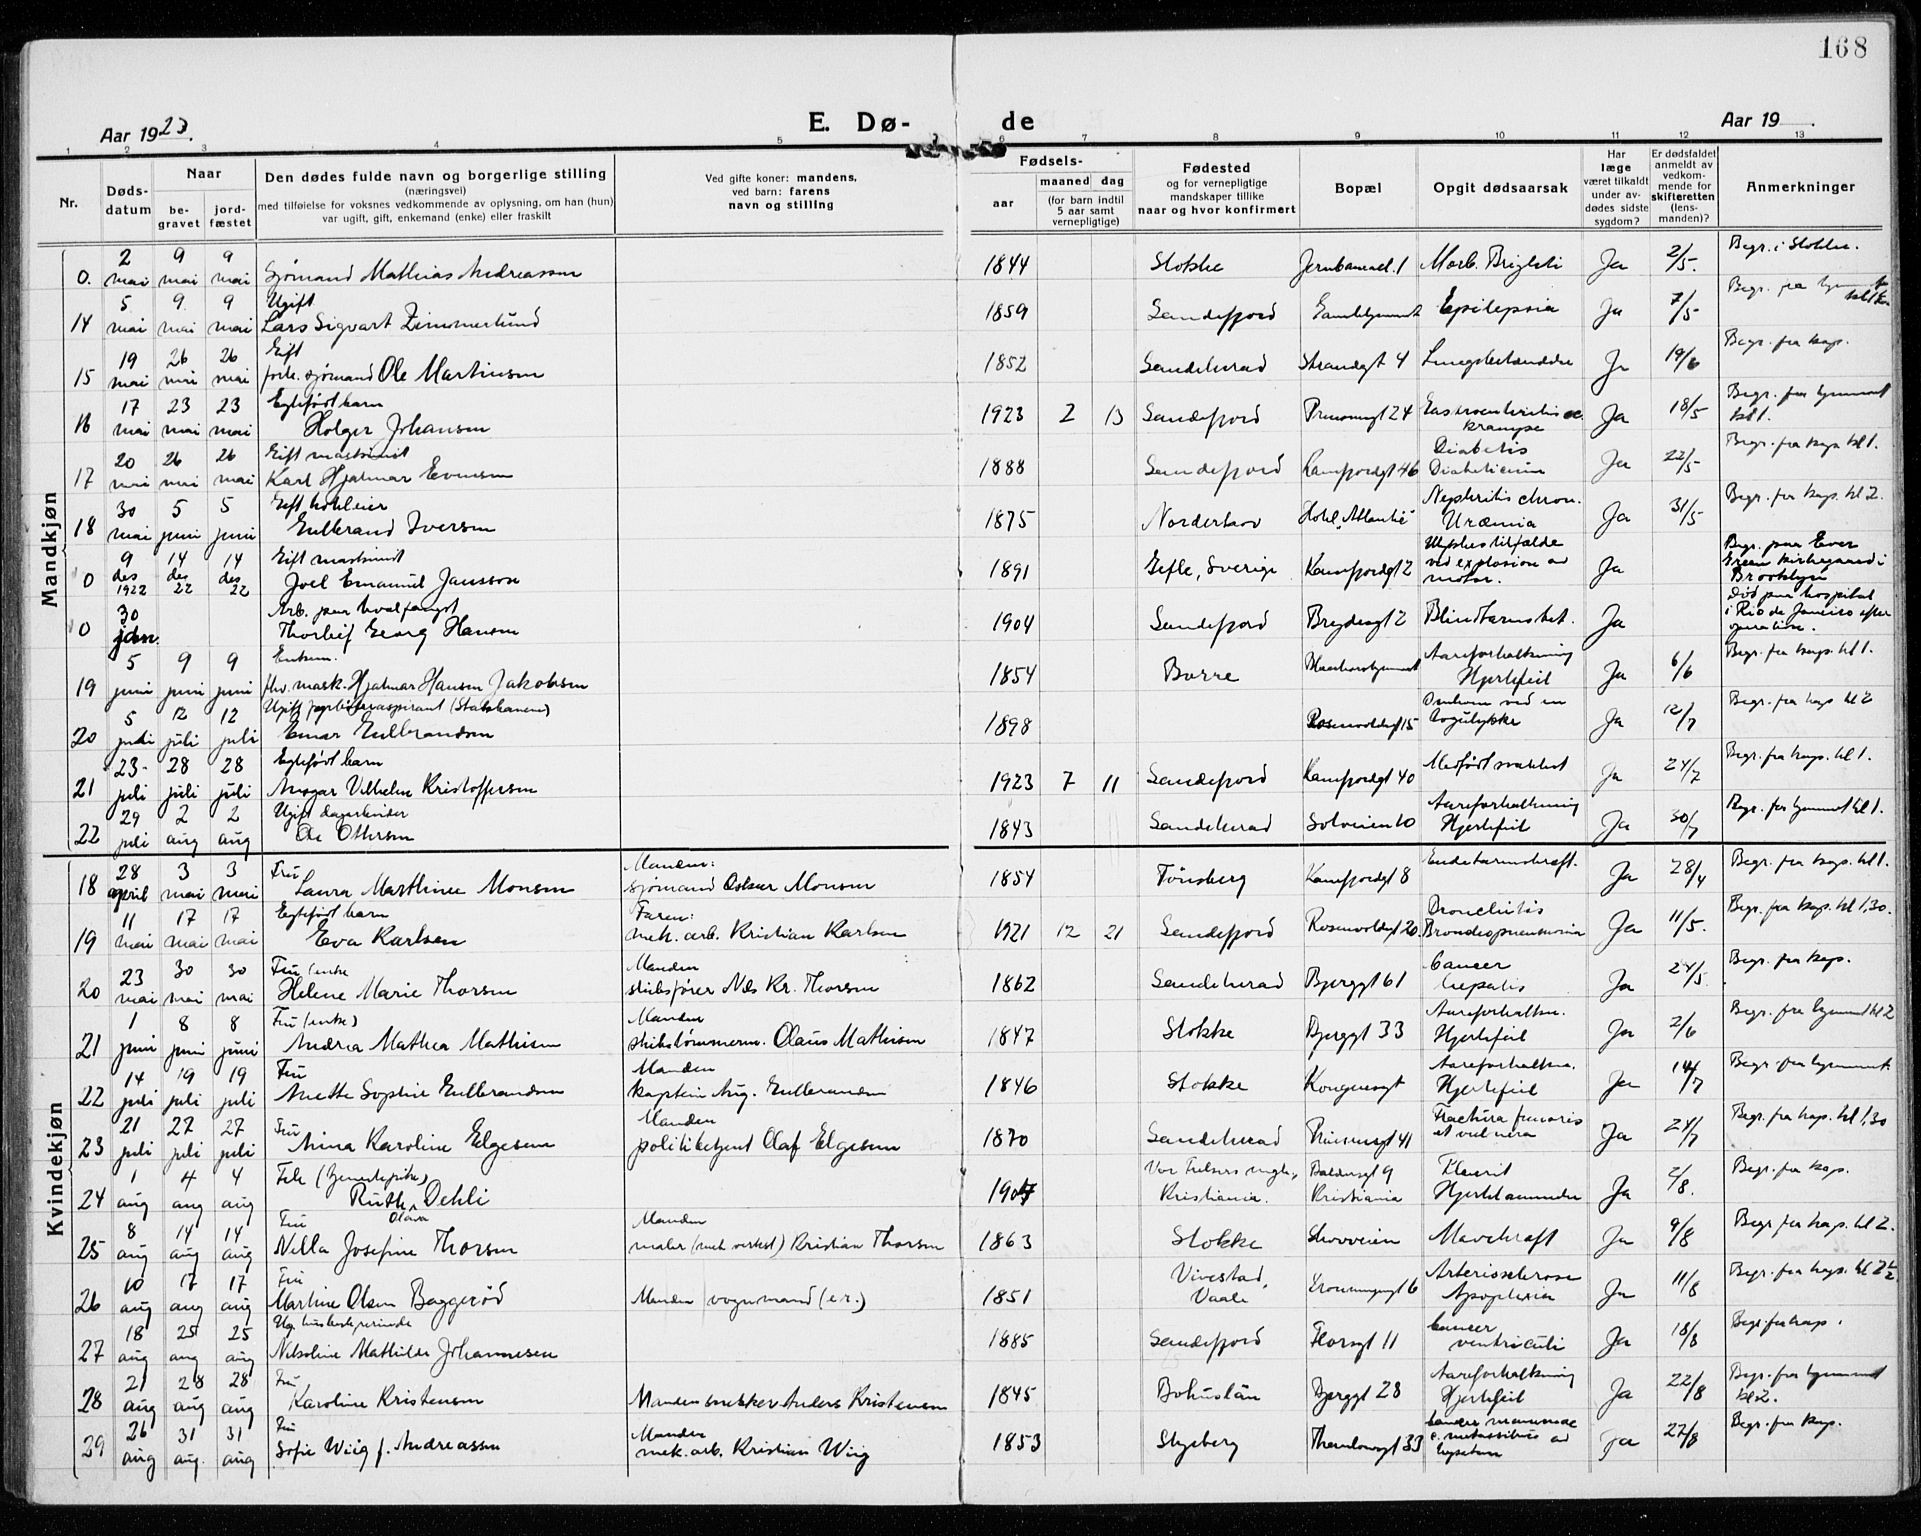 168
Aar 1923.
E. Dø-
de
Aar 19
1 2 3 4 5 6 7 8 9 10 11 12 13
Nr.
Døds-
datum
Naar
be-
gravet
jord-
fæstet
Den dødes fulde navn og borgerlige stilling
(næringsvei)
med tilføielse for voksnes vedkommende av oplysning, om han (hun)
var ugift, gift, enkemand (enke) eller fraskilt
Ved gifte koner: mandens,
ved barn: farens
navn og stilling
Fødsels-
aar
maaned
dag
(for barn indtil
5 aar samt
vernepligtige)
Fødested
og for vernepligtige
mandskaper tillike
naar og hvor konfirmert
Bopæl
Opgit dødsaarsak
Har
læge
været tilkaldt
under av-
dødes sidste
sygdom?
Er dødsfaldet
anmeldt av
vedkom-
mende for
skifteretten
(lens-
manden)?
Anmerkninger
Mandkjøn
2 9 9 Begr. i Stokke.
0. mai mai mai Sjømand Mathias Andreassen 1844 Stokke Jernbaneal. 1 Morb. Brighti Ja 2/5.
5 9 9 Ugift
14 mai mai mai Lars Sigvart Zimmerlund 1859 Sandefjord Epilepsia Ja 7/5
19 26 26 Gift Begr. fra kap.
15 mai mai mai forh. sjømand Ole Martinsen 1852 Sandeherad Strandgt 4 Ja 19/6
17 23 23 Egtefødt barn
16 mai mai mai Holger Johansen 1923 2 13 Sandefjord Prinsensgt 24 krampe Ja 18/5 kl 1.
20 26 26 Gift maskinist Diabetis Begr. fra kap. kl 1.
17 mai mai mai Karl Hjalmar Evensen 1888 Sandefjord Kamfjordgt 46 Ja 22/5
30 5 5 Gift hoteleier Nephritis chron. Begr. fra kap. kl 2.
18 mai juni juni Gulbrand Iversen 1875 Norderhov Hotel "Atlantic" Uræmia Ja 31/5
9 14 14 Gift maskinist Ulykkestilfælde Begr. paa Ever
0 des 1922 des 22 des 22 Joel Emanuel Jansson 1891 Gefle, Sverige Kamfjordgt 2 ved explosion av motor. Ja Green kirkegaard i Brooklyn
30 Arb. paa hvalfangst Død paa hospital
0 jan. Thorleif Georg Hansen 1904 Sandefjord Brydesgt 2 Blindtarmsbet. Ja i Rio de Janeiro efter operation.
5 9 9 Enkem. Aareforkalkning Begr. fra kap. kl 1.
19 juni juni juni fhv. mask. Hjalmar Hansen Jakobsen 1854 Borre Hjertefeil Ja 6/6
5 12 12 Ugift (Statsbanene) Omkom ved en Begr. fra kap kl 2
20 juli juli juli Einar Gulbrandsen 1898 Rosenvoldsgt 15 togulykke Ja 12/7
23 28 28 Egtefødt barn Begr. fra kap. kl 1.
21 juli juli juli Ansgar Vilhelm Kristoffersen 1923 7 11 Sandefjord Kamfjordgt 40 Medfødt svakhet Ja 24/7
29 2 2 Ugift dagarbeider Aareforkalkning
22 juli aug aug Ole Ottersen 1843 Sandeherad Solveien 10 Hjertefeil Ja 30/7
Kvindekjøn
28 3 3 Fru Manden: Endetarmskræft. Begr. fra kap. kl 1.
18 april mai mai Laura Marthine Monsen sjømand Oskar Monsen 1854 Tönsberg Kamfjordgt 8 Ja 28/4
11 17 17 Egtefødt barn Faren: Bronchitis Begr. fra kap. kl 1,30.
19 mai mai mai Eva Karlsen mek. arb. Kristian Karlsen 1921 12 21 Sandefjord Rosenvoldsgt 20. Bronchopneumonia Ja 11/5.
23 30 30 Fru (enke Manden Cancer Begr. fra kap.
20 mai mai mai Helene Marie Thorsen skibsfører Nils Kr. Thorsen 1862 Sandeherad Bjerggt 61 hepatis Ja 24/5
1 8 8 Fru (enke) Manden Aareforkalkn.
21 juni juni juni Andrea Mathea Mathisen skibstømmerm. Olaus Mathisen 1847 Stokke Bjerggt 33 Hjertefeil Ja 2/6
14 19 19 Fru Manden Aareforkalkn.
22 juli juli juli Anette Sophie Gulbrandsen kaptein Aug. Gulbrandsen 1846 Stokke Kongensgt Hjertefeil Ja 14/7
21 27 27 Fru Manden Fractura femoris Begr. fra kap. kl 1,30
23 juli juli juli Anna Karoline Elgesem politibetjent Olaf Elgesem 1870 Sandeherad Prinsensgt 41 et vulnera Ja 24/7
1 4 4 Frk. Vor Frelsers mgh., Baldersgt 9 Begr. fra kap.
24 aug aug aug Ruth Olava Oehli 1904 Kristiania. Kristiania Ja 2/8.
8 14 14 Fru Manden Begr. fra kap. kl 2.
25 aug aug aug Nilla Josefine Thorsen maler (mek verkst) Kristian Thorsen 1863 Stokke Skovveien Mavekræft Ja 9/8
10 17 17 Fru Vivestad, Arteriosclerose Begr. fra kap. kl 2½.
26 aug aug aug Martine Olsen Baggerød Manden vognmand (er.) 1851 Vaale Dronningensgt 6 Apoplexia Ja 11/8
18 25 25 Ug. husbestyrerinde Cancer Begr. fra kap.
27 aug aug aug Nikoline Mathilde Johannesen 1885 Sandefjord Florsgt 11 ventriculi Ja 18/8
21 28 28 Fru Aareforkalkning
28 aug aug aug Karoline Kristensen Manden snekker Anders Kristensen 1845 Bohuslän Bjerggt 28 Hjertefeil Ja 22/8 kl 2.
26 31 31 Fru Manden Cancer mammae Begr. fra kap.
29 aug aug. aug Sofie Wiig f. Andreassen mek. arb. Kristian Wiig 1853 Skjeberg 33 Ja 27/8